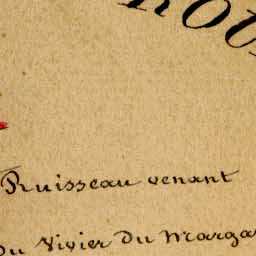 ROU
Ruisseau venant
Du Vivier du Marga